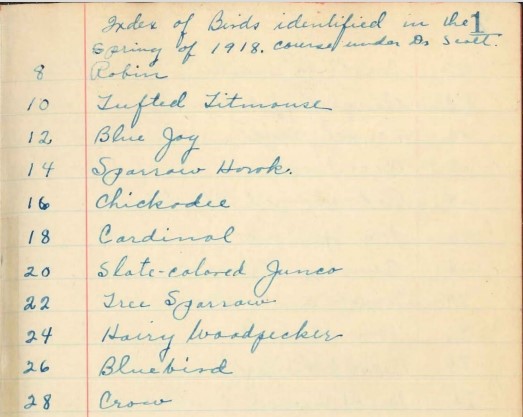 1
Index of Birds identified in the
Spring of 1918. course under Dr Scott.
8 Robin
10 Tufted Titmouse
12 Blue Jay
14 Sparrow Hawk.
16 Chickadee
18 Cardinal
20 Slate-colored Junco
22 Tree Sparrow
24 Hairy Woodpecker
26 Bluebird
28 Crow